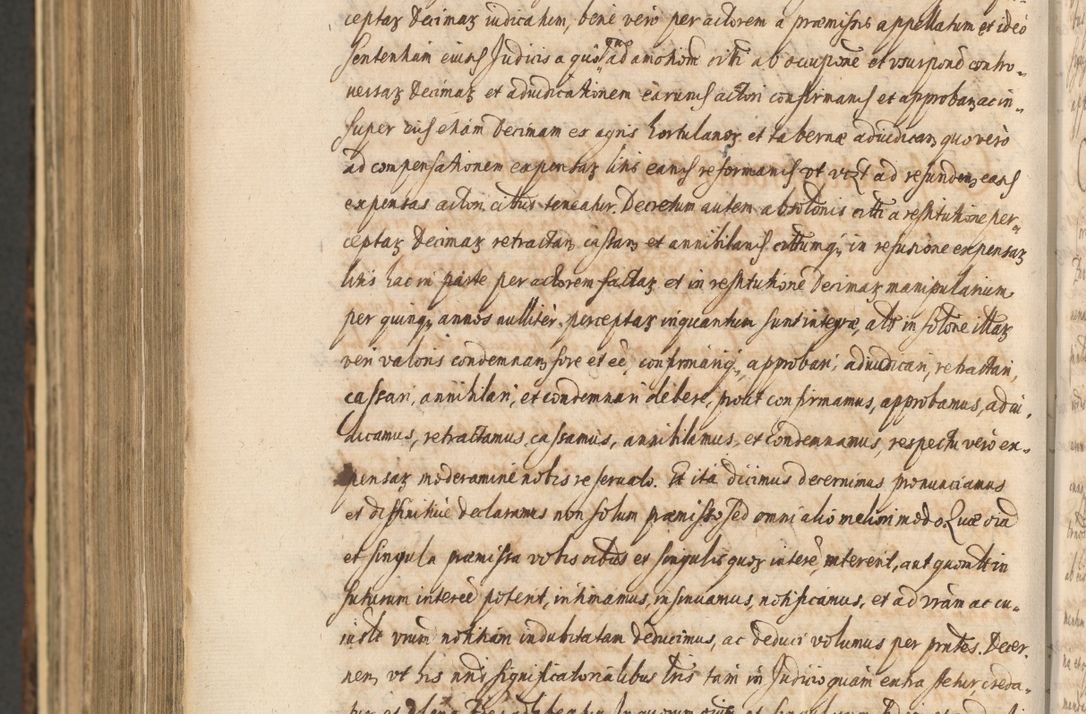 ceptaȝ Decimaȝ iudicatum, bene vero per actorem a præmissis appellatum et ideò
sententiam eius Judicis a quo quo ad amotionem citti ab occupne et vsurpnd contro-
versaȝ Decimaȝ et adiudicationem earund actori confirmand et approbanȝ ac in-
super eid etiam Decimam ex agris hortulanoȝ et tabernæ adiudicanȝ quo verò
ad compensationem expensaȝ litis eand reformand vt vizt ad refundenȝ easd
expensas actori citus teneatur. Decretum autem absolonis citti a restitutione per-
ceptaȝ Decimaȝ retractanȝ cassanȝ et annihiland cittumqȝ in refusione expensaȝ
litis hac in parte per actorem factaȝ et in restitutione Decimaȝ manipularium
per quinqȝ annos nulliter perceptaȝ inquantum sunt integræ, als in solone illaȝ
veri valoris condemnanȝ fore et eẽ, confirmariqȝ, approbari, adiudicari, retractari,
cassari, annihilari, et condemnari debere, prout confirmamus, approbamus, adiu-
dicamus, retractamus, cassamus, annihilamus, et condemnamus, respectu verò ex-
pensaȝ moderamine nobis reseruato. Et ità dicimus decernimus pronunciamus
et diffinitiuè declaramus non solum præmisso sed omni alio meliori modo. Quæ oia
et singula præmissa vobis oibus et singulis quoȝ interẽ, interent, aut quomlt in
futurum intereẽ potent, intimamus, insinuamus, notificamus, et ad vram ac cu-
iuslt vrum notitiam indubitatam deducimus, ac deduci volumus per pntes. Decer-
nenȝ vt his nris significatorialibus lris tam in Judicio quam extra stetur, creda-